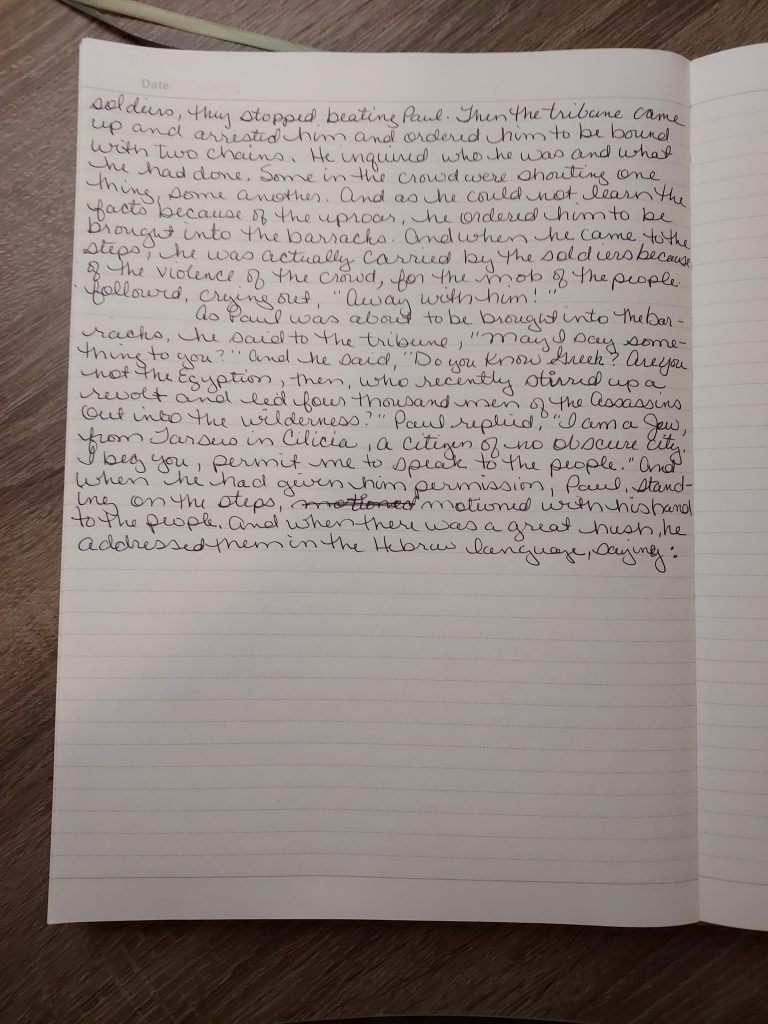 Date:
soldiers, they stopped beating Paul. Then the tribune came
up and arrested him and ordered him to be bound
with two chains. He inquired who he was and what
he had done. Some in the crowd were shouting one
thing, some another. And as he could not learn the
facts because of the uproar, he ordered him to be
brought into the barracks. And when he came to the
steps, he was actually carried by the soldiers because
of the violence of the crowd, for the mob of the people
followed, crying out, "Away with him!"
As Paul was about to be brought into the bar-
racks, he said to the tribune, "May I say some-
thing to you?" And he said, "Do you know Greek? Are you
not the Egyption, then, who recently stirred up a
revolt and led four thousand men of the Assassins
out into the wilderness?" Paul replied, "I am a Jew,
from Tarsus in Cilicia, a citizen of no obscure city.
I beg you, permit me to speak to the people." And
when he had given him permission, Paul, stand-
ing on the steps, motioned motioned with his hand
to the people. And when there was a great hush, he
addressed them in the Hebrew language, saying: